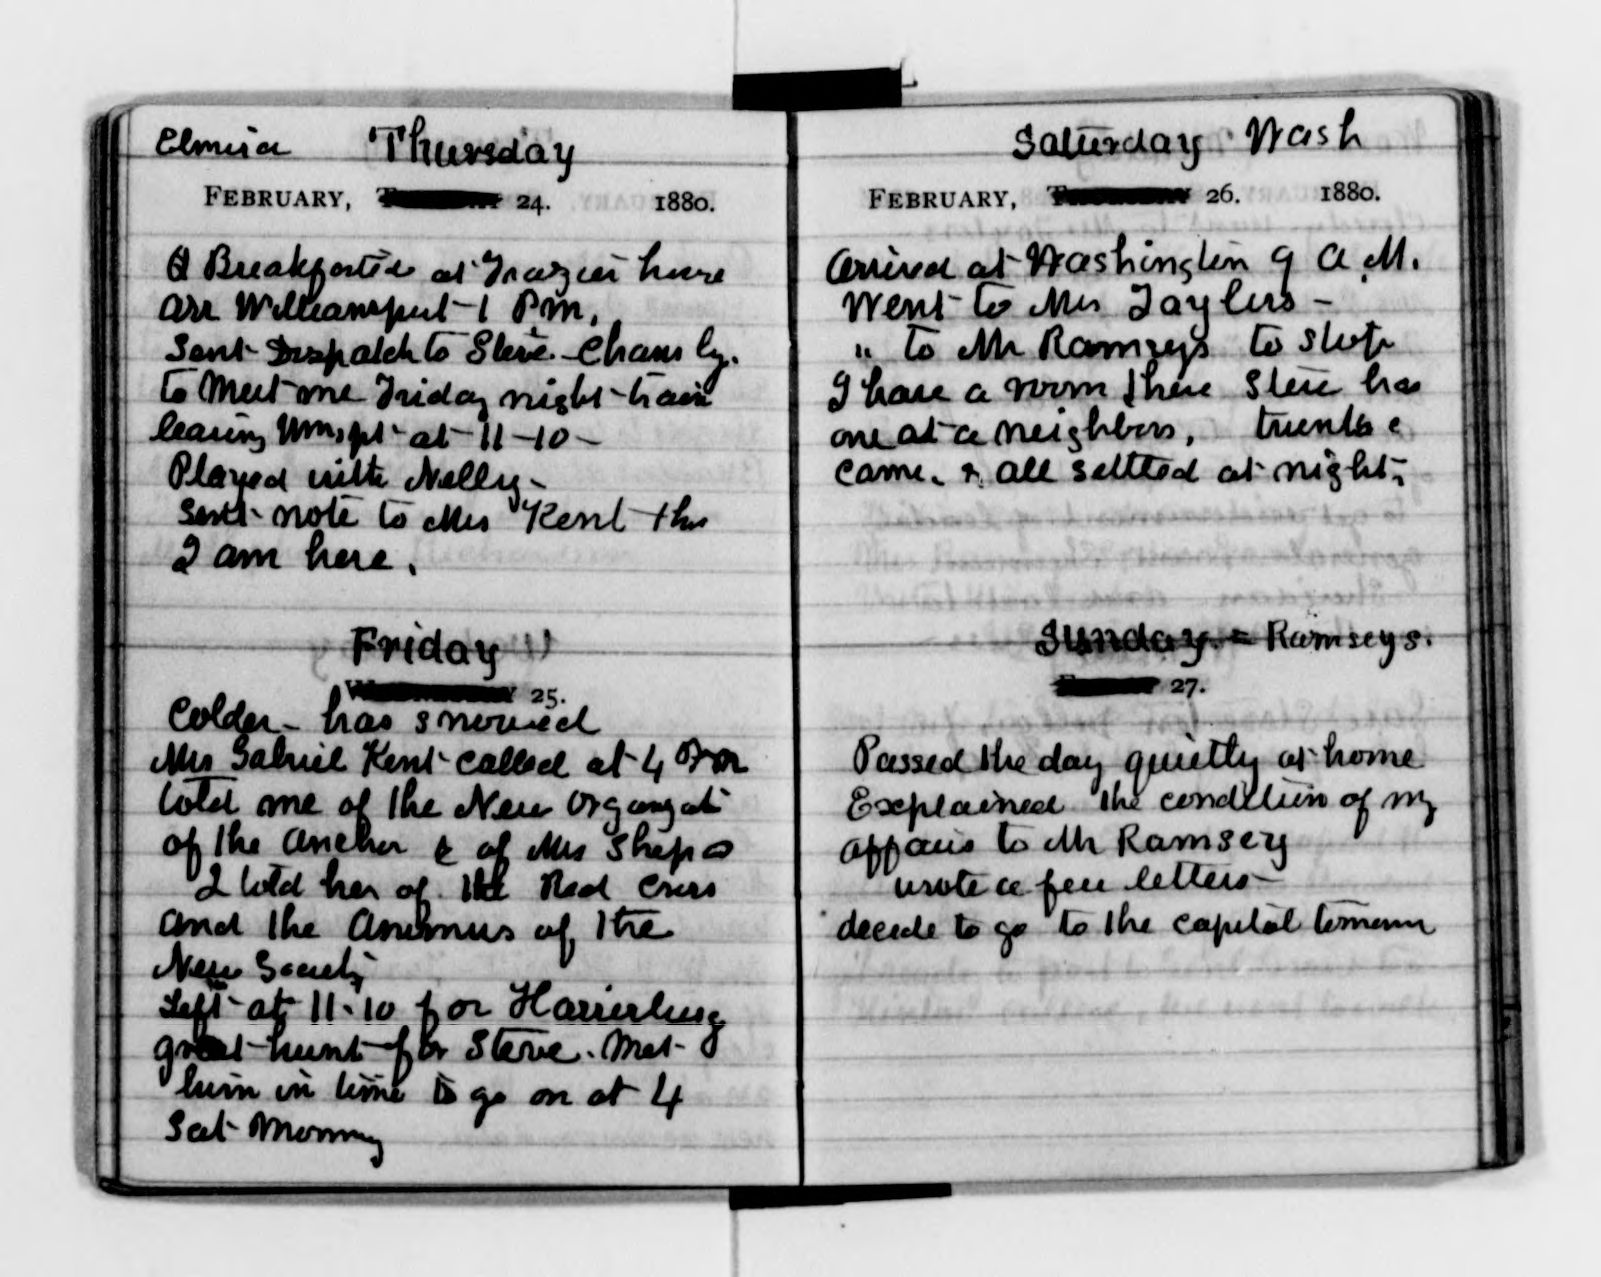 Elmira Thursday
FEBRUARY, 24. 1880.
Breakfasted at Frazier house
arr Williamsport 1 Pm,
Sent Dispatch to Steve.
to Meet me Friday night train
leaving Wmspt at 11-10 -
Played with Nelly -
Sent note to Mrs Kent tha
I am here.
Friday
25.
Colder - has snowed
Mrs Gabriel Kent called at 4 Pm
told me of the New Organizati
of the Ancher & of Mrs Shep
I told her of the Red Cross
and the Animus of the
New Society
Left at 11-10 for Harrisburg
great hunt for Steve. Met
him in time to go on at 4
Sat Morning
Saturday Wash
FEBRUARY, 26. 1880.
Arrived at Washington 9 A.M.
Went to Mrs Taylers -
" to Mr Ramseys to stop
I have a room there Steve has
one at a neighbors, trunks
came. & all settled at night -
Sunday. = Ramseys.
27.
Passed the day quietly at home
Explained the condition of my
affairs to Mr Ramsey
wrote a few letters -
decide to go to the capitol tomorrow